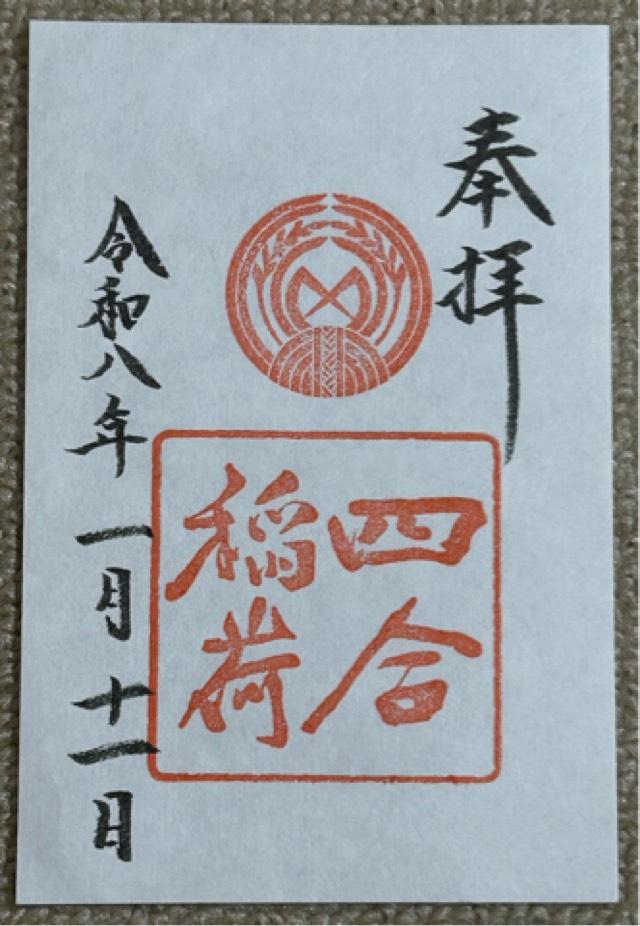 奉拝
四合
稲荷
令和八年一月十一日